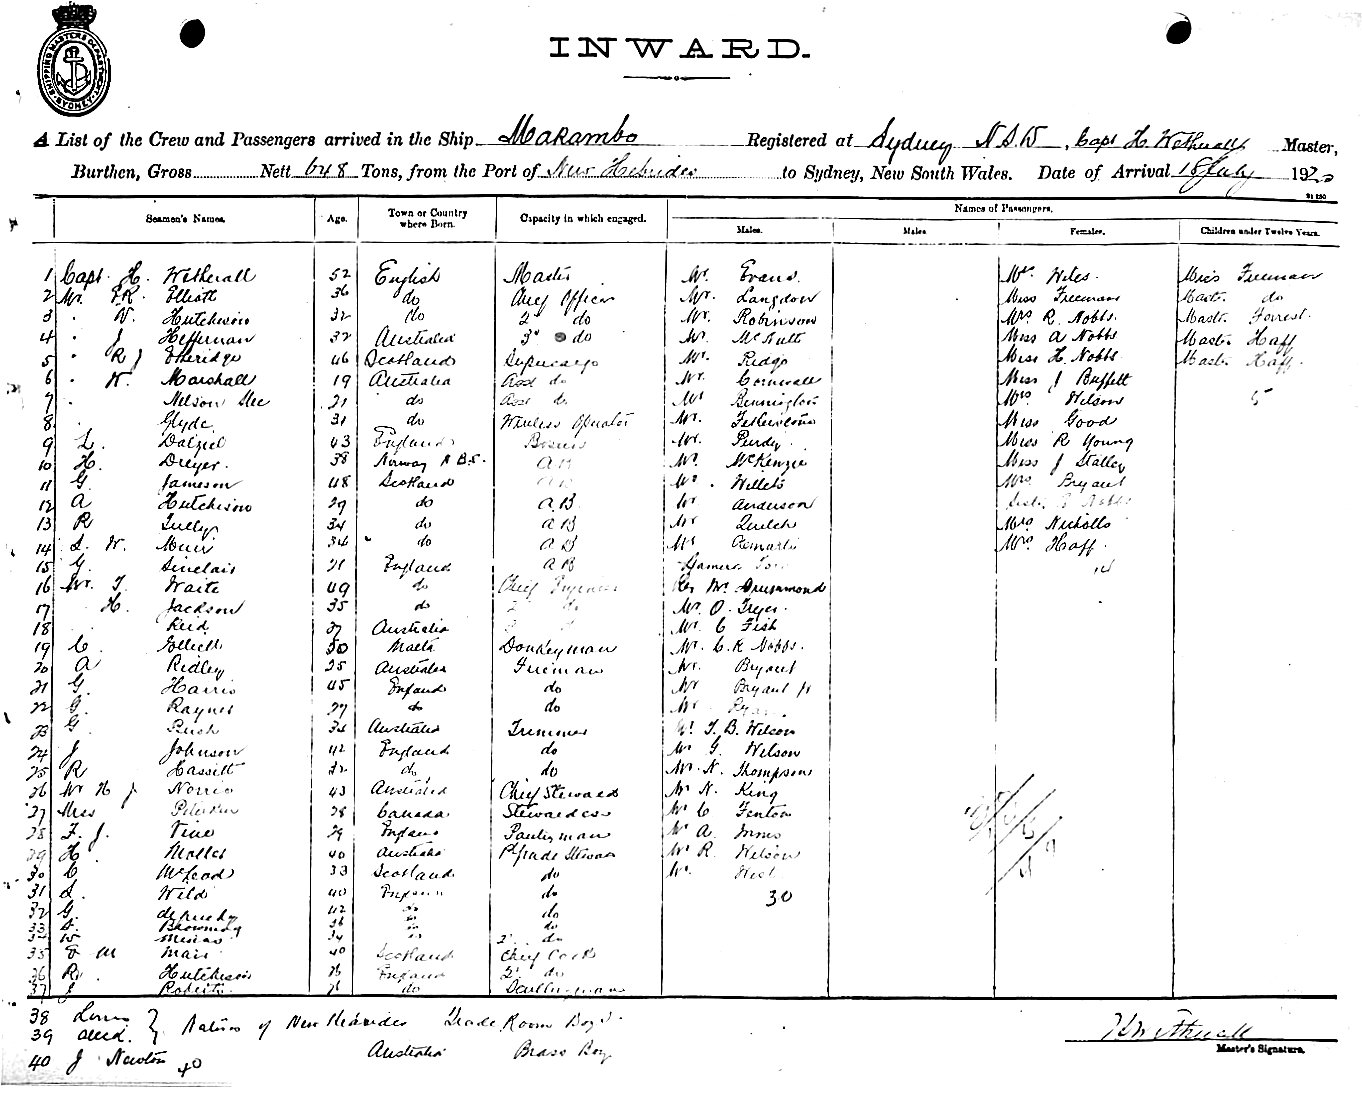 SHIPPING MASTERS DEPARTMENT SYDNEY
INWARD.
A List of the Crew and Passengers arrived in the Ship Marambo Registered at Sydney N.S.W, Capt H. Wetherall Master,
Burthen, Gross Nett 648 Tons, from the Port of New Hebrides to Sydney, New South Wales. Date of Arrival 18 July 1920
Seamen's Names. Age. Town or Country where Born. Capacity in which engaged. Names of Passengers.
Males. Males Females. Children under Twelve Years.
1 Capt. H. Wetherall 52 English Master Mr. Evans. Mrs. Wiles. Miss Freeman
2 Mr. Elliott 36 do Chief Officer Mr. Langdon Miss Freeman Mastr. do
3 " W. Hutchison 32 do 2d do Mr. Robinson Mrs R. Nobbs. Mastr. Forrest
4 " J Heffernan 32 Australia 3d do Mr. McNutt Miss A Nobbs Mastr Haff
5 " R J Etheridge 46 Scotland Supercargo Mr. Ridge Miss H. Nobbs. Mastr Haff.
6 " W. Marshall 19 Australia Asst do Mr. Cornwall Miss J Buffett
7 " Nelson 21 do Asst do Mr Bennington Mrs Wilson 5
8 " Clyde 31 do Wireless Operator Mr. Miss Good
9 L. Dalziel 43 England Bosun Mr. Purdy. Miss R Young
10 H. Dreyer. 38 Norway N.B.S. AB Mr. McKenzie Miss J Stalley
11 G. Jameson 48 Scotland AB Mr. Willets Mrs Bryant
12 A Hutchison 29 do A.B. Mr Anderson Nobbs
13 R Tully 34 do AB Mr Quilch Mrs Nicholls
14 S. W. Muir 34 do AB Mr Mrs Haff.
15 G. Sinclair 21 England AB 14
16 Mr. T. Waite 49 do Chief Engineer Rev Mr. Drummond
17 H. Jackson 35 do 2d do Mr. O. Fryer.
18 Reid 37 Australia Mr. C Fish
19 C. 50 Malta Donkeyman Mr. C. R Nobbs.
20 A Ridley 25 Australia Fireman Mr. Bryant
21 G. Harris 45 England do Mr Bryant Jr
22 G. Raynes 27 do do Mr Ryan
23 G Bush 34 Australia Trimmer Mr. T. B. Wilson
24 J Johnson 42 England do Mr G. Wilson
25 R Hassitt 32 do do Mr. N. Thompson
26 Mr H J Norris 43 Australia Chief Steward Mr N. King
27 Miss 28 Canada Stewardess Mr C. Fenton
28 F. J. Vine 29 England Pantryman Mr A. Innes
29 H. 40 Australia Mr R. Wilson
30 C McLeod 33 Scotland do Mr. West
31 S. Wild 40 England do 30
32 G. 42 do do
33 Browning 36 do do
34 W 34 do 2d do
35 Mair 40 Scotland Chief Cook
36 R. Hutchison 26 England 2d do
37 J Roberts 21 do Sculleryman
38 Natives of New Hebrides Trade Room Boys.
39
40 J Newton 40 Australia Brass Boy
H Wetherall
Master's Signature.